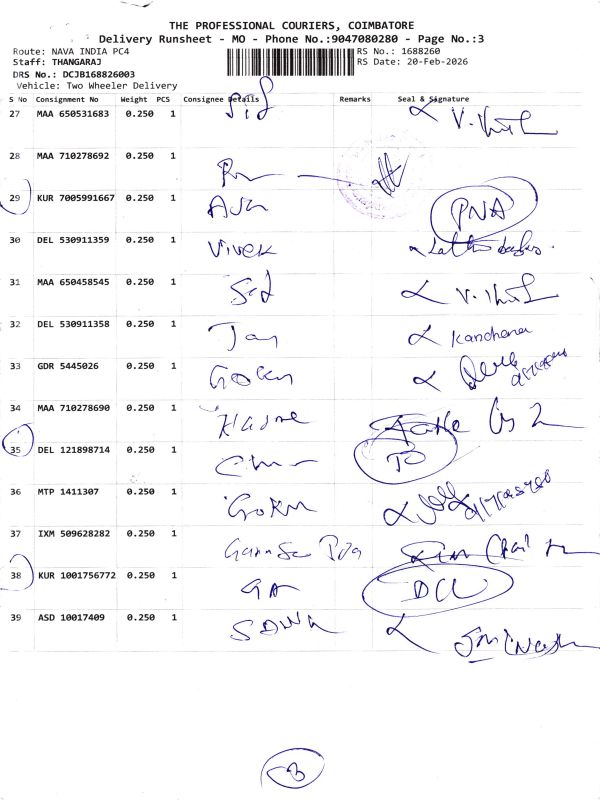 THE PROFESSIONAL COURIERS, COIMBATORE
Delivery Runsheet - MO - Phone No.:9047080280 - Page No.:3
Route: NAVA INDIA PC4 RS No.: 1688260
Staff: THANGARAJ RS Date: 20-Feb-2026
DRS No.: DCJB168826003
Vehicle: Two Wheeler Delivery
S No Consignment No Weight PCS Consignee Details Remarks Seal & Signature
27 MAA 650531683 0.250 1 Sid
28 MAA 710278692 0.250 1
29 KUR 7005991667 0.250 1 PNA
30 DEL 530911359 0.250 1 Vivek
31 MAA 650458545 0.250 1 Sid
32 DEL 530911358 0.250 1 Jay Kanchana
33 GDR 5445026 0.250 1 Goku
34 MAA 710278690 0.250 1
35 DEL 121898714 0.250 1 TO
36 MTP 1411307 0.250 1 Goku
37 IXM 509628282 0.250 1
38 KUR 1001756772 0.250 1 GA DCL
39 ASD 10017409 0.250 1
3